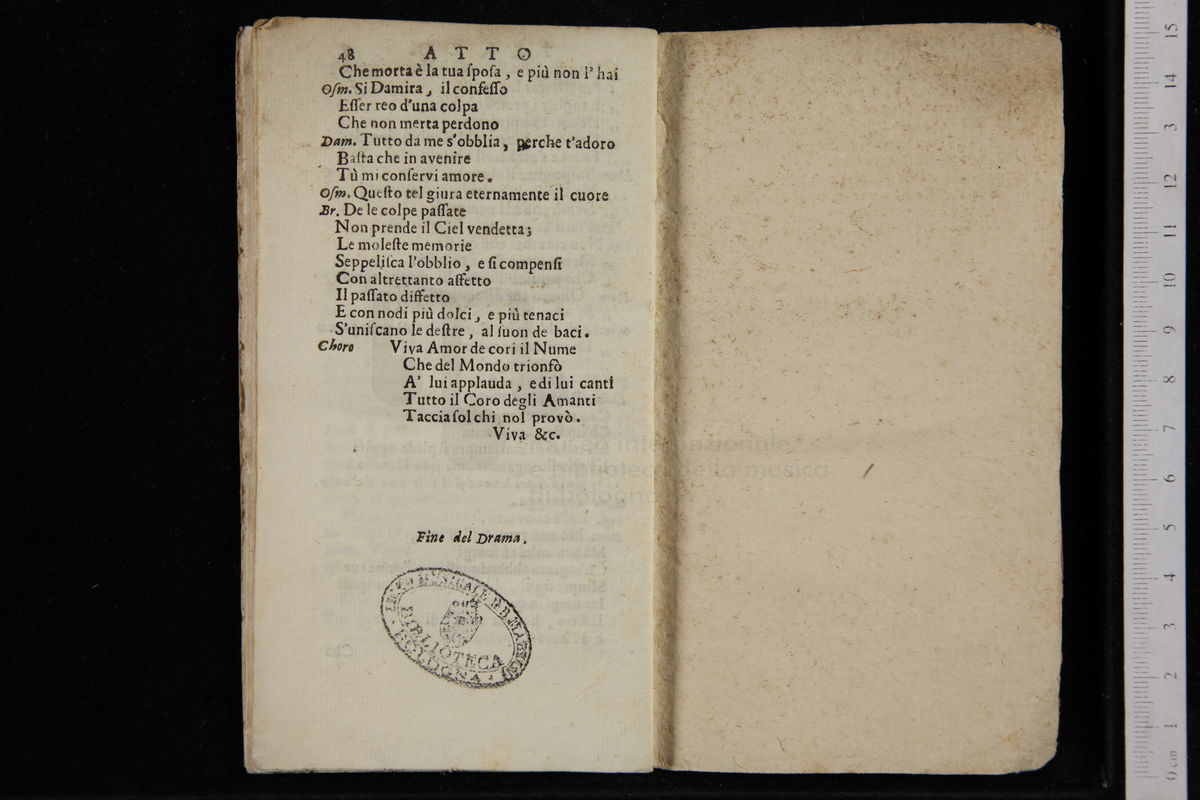 48 ATTO
Che morta è la tua ſpoſa, e più non l' hai
Oſm. Si Damira, il confeſſo
Eſſer reo d'una colpa
Che non merta perdono
Dam. Tutto da me s'obblia, perche t'adoro
Baſta che in avenire
Tù mi conſervi amore.
Oſm. Queſto tel giura eternamente il cuore
Br. De le colpe paſſate
Non prende il Ciel vendetta;
Le moleſte memorie
Seppeliſca l'obblio, e ſi compenſi
Con altrettanto affetto
Il paſſato diffetto
E con nodi più dolci, e più tenaci
S'uniſcano le deſtre, al ſuon de baci.
Choro Viva Amor de cori il Nume
Che del Mondo trionfò
A' lui applauda, e di lui canti
Tutto il Coro degli Amanti
Taccia ſol chi nol provò.
Viva &c.
Museo internazionale
e biblioteca della musica
di Bologna
Fine del Drama.
LICEO MUSICALE G.B. MARTINI
BIBLIOTECA
BOLOGNA
0 cm 1 2 3 4 5 6 7 8 9 10 11 12 13 14 15